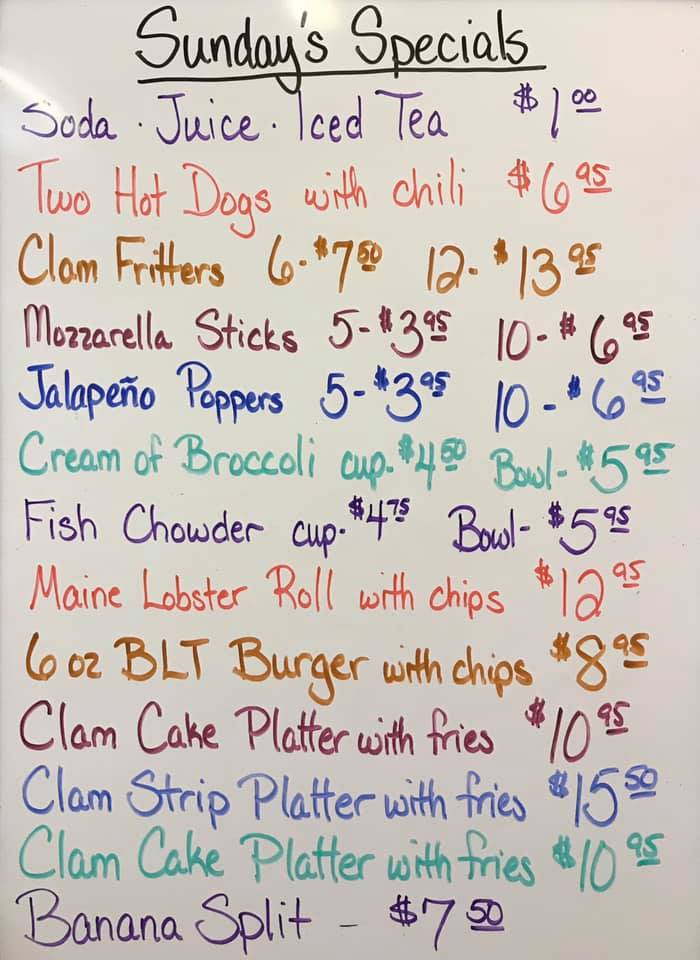 Sunday's Specials
Soda · Juice · Iced Tea $1.00
Two Hot Dogs with chili $6.95
Clam Fritters 6-$7.50 12-$13.95
Mozzarella Sticks 5-$3.95 10-$6.95
Jalapeño Poppers 5-$3.95 10-$6.95
Cream of Broccoli cup-$4.50 Bowl-$5.95
Fish Chowder cup-$4.75 Bowl-$5.95
Maine Lobster Roll with chips $12.95
6 oz BLT Burger with chips $8.95
Clam Cake Platter with fries $10.95
Clam Strip Platter with fries $15.50
Clam Cake Platter with fries $10.95
Banana Split - $7.50